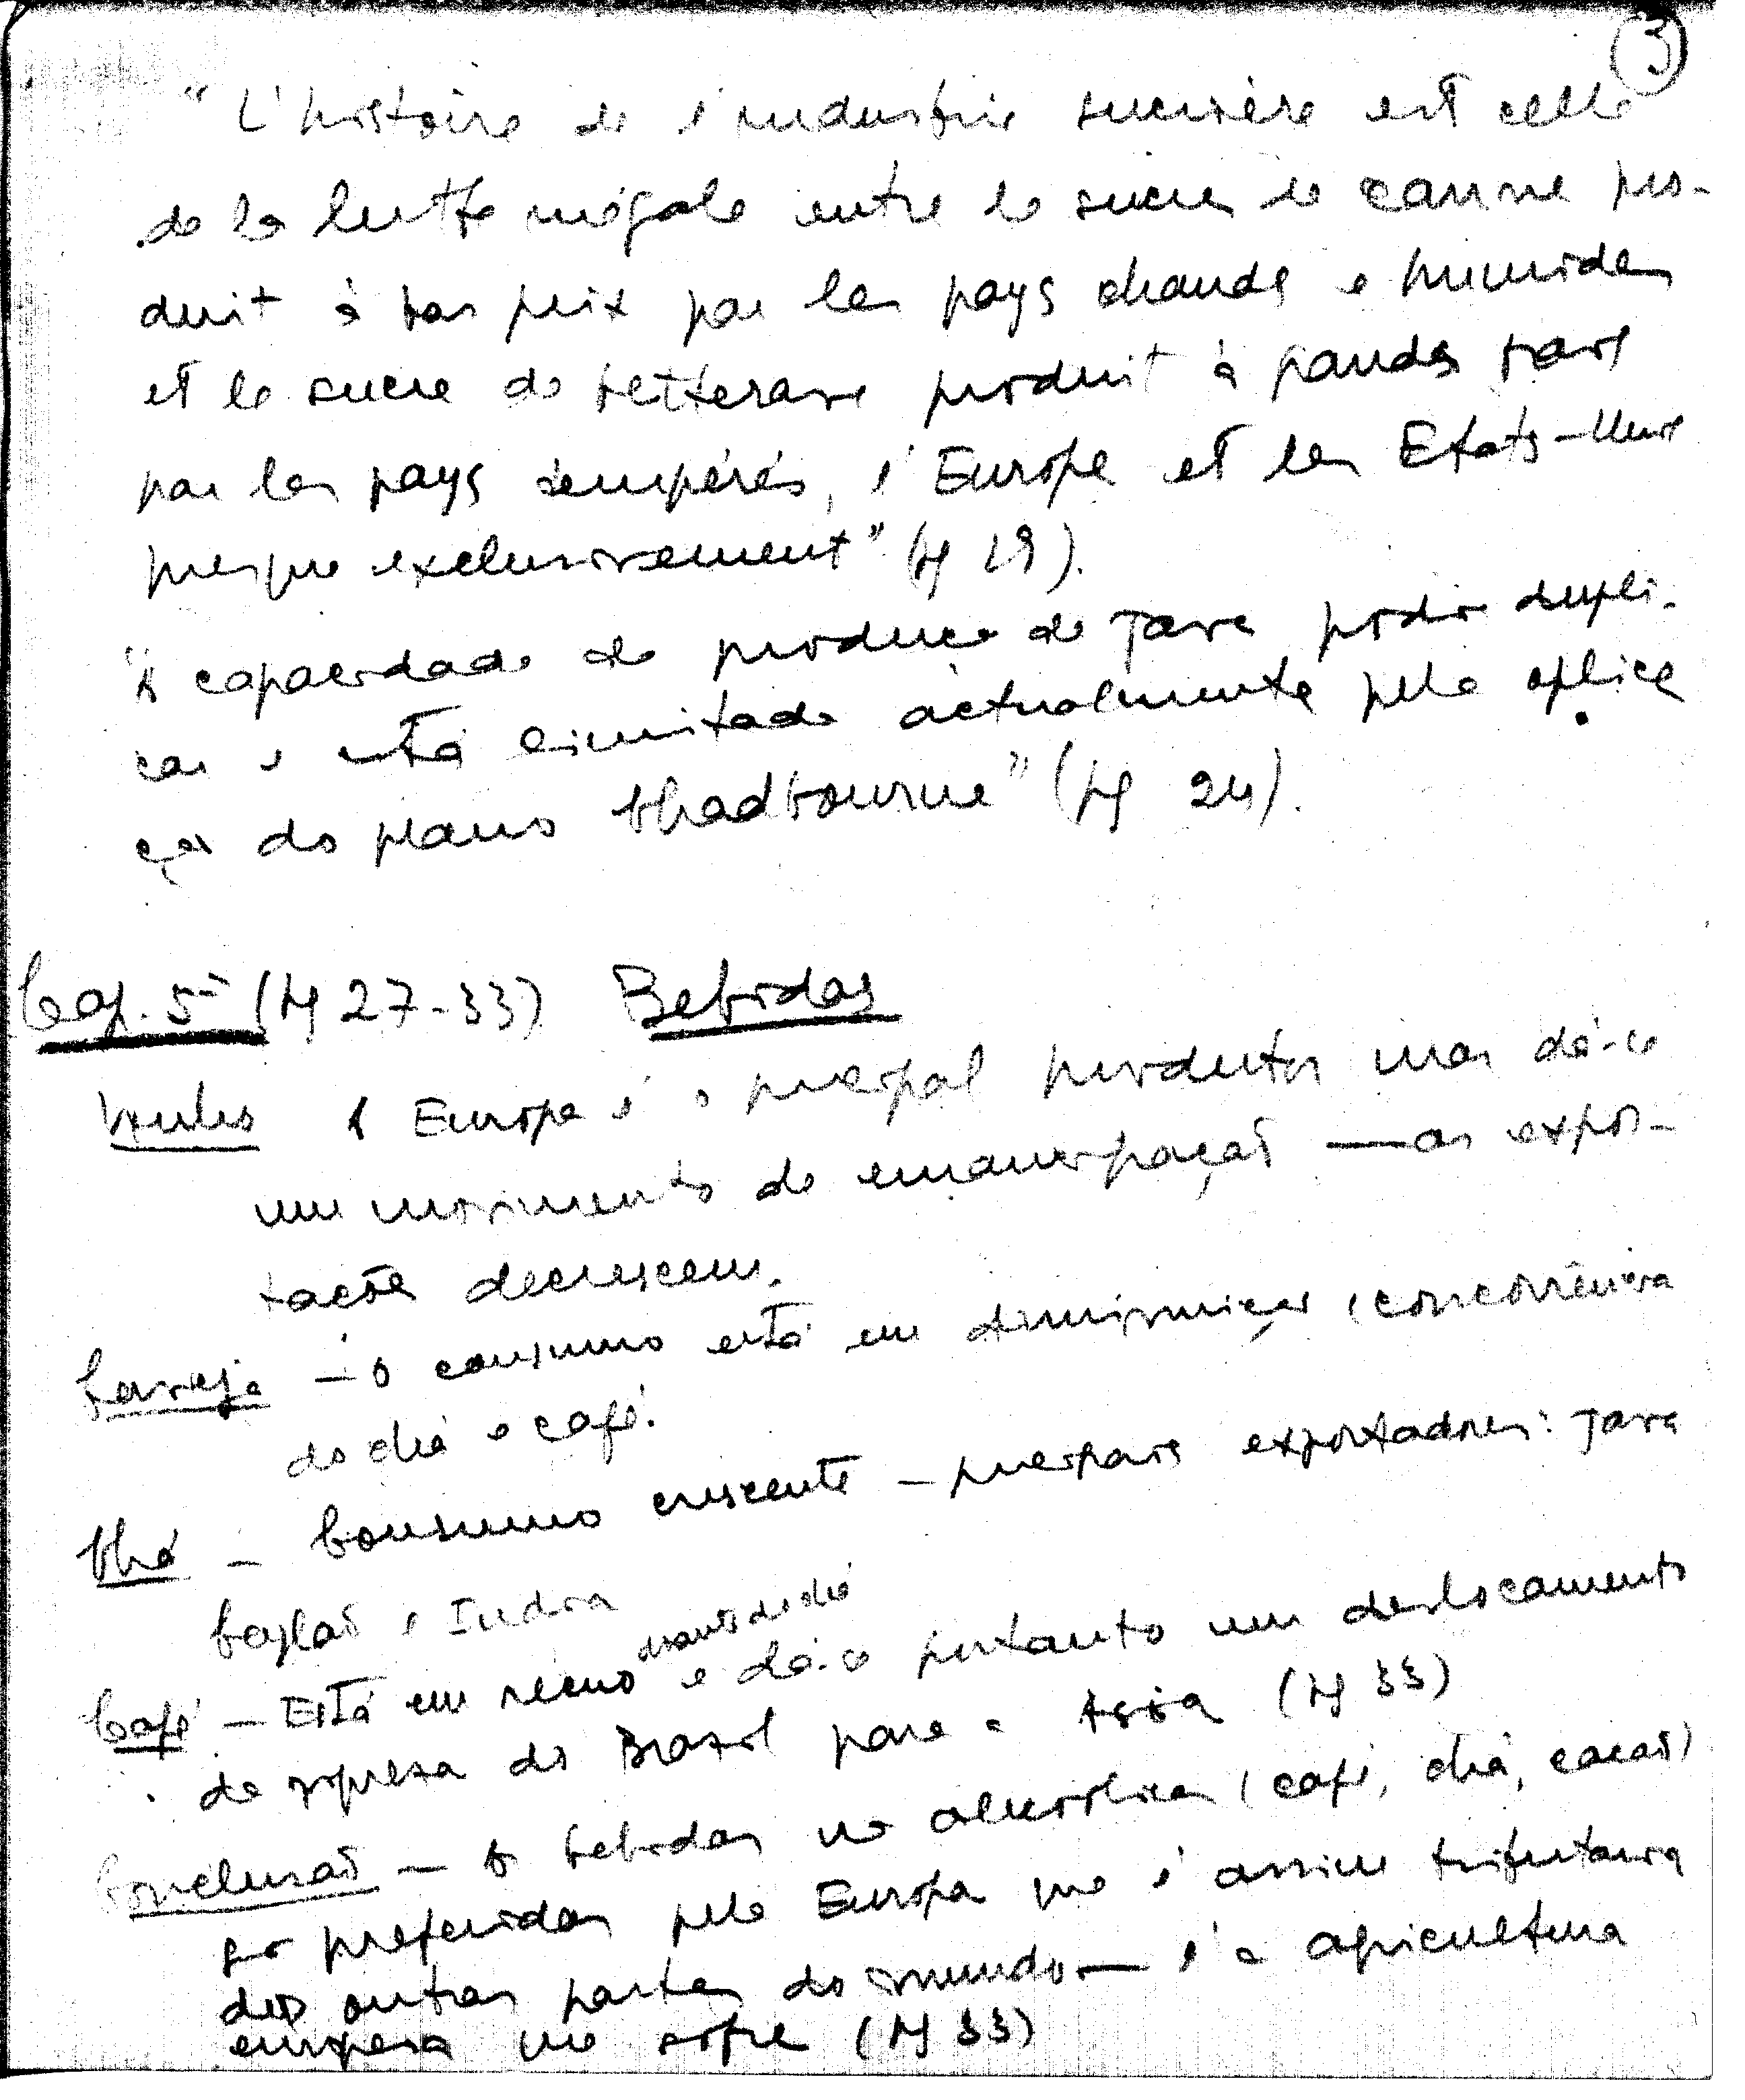 3
"L'histoire de l'industrie sucrière est celle
de la lutte inégale entre le sucre de canne pro-
duit à bas prix par les pays chauds e humides
et le sucre de betterave produit à grands frais
par les pays tempérés, l'Europe et les Etats-Unis
presque exclusivement" (pg 19).
"A capacidade de produção de Java podia dupli-
car e está limitada actualmente pela aplica
ção do plano Chadbourne" (pg 24).
Cap. 5 (pg 27-33) Bebidas
Vinho A Europa é o principal produtor mas dá-se
um movimento de emancipação — as expor-
tações decrescem.
Cerveja — o consumo está em diminuição, concorrência
do chá e café.
Chá — Consumo crescente — principais exportadores: Java
Ceylão e India
Café — Está em recuo diante do chá e dá-se portanto um deslocamento
de riqueza do Brazil para a Asia (pg 33)
Conclusão — As bebidas não alcoólicas (café, chá, cacau)
são preferidas pela Europa que é assim tributaria
das outras partes do mundo — é a agricultura
europeia que sofre (pg 33)